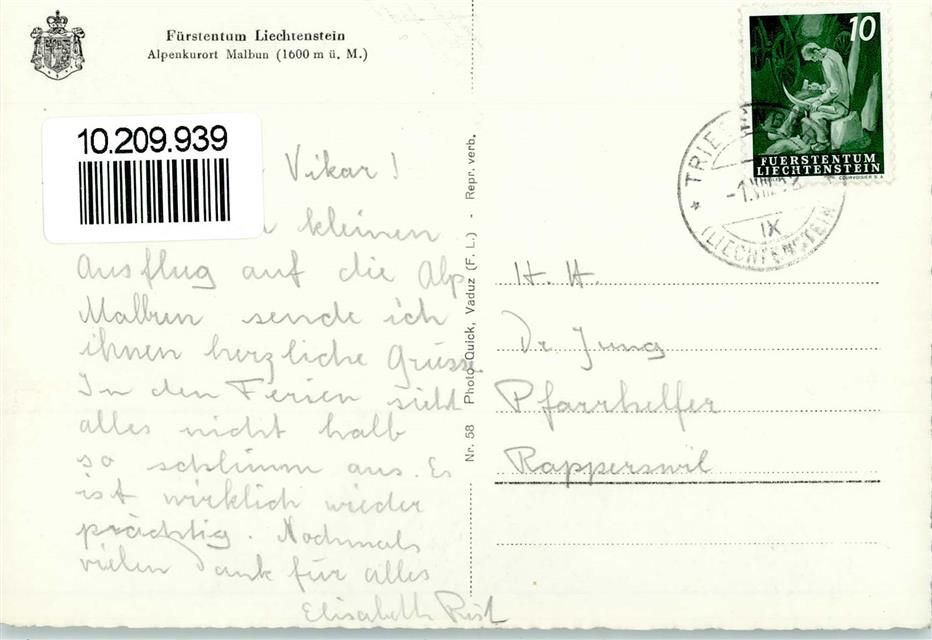 Fürstentum Liechtenstein
Alpenkurort Malbun (1600 m ü. M.)
10.209.939
Vikar!
kleinen
Ausflug auf die Alp
Malbun sende ich
ihnen herzliche Grüsse
In den Ferien sieht
alles nicht halb
so schlimm aus. Es
ist wirklich wieder
prächtig. Nochmals
vielen Dank für alles
Elisabeth
Nr. 58 Photo Quick, Vaduz (F. L.) - Repr. verb.
10
FUERSTENTUM
LIECHTENSTEIN
COURVOISIER S.A.
(LIECHTENSTEIN)
IX
H. H.
Dr Jung
Pfarrhelfer
Rapperswil